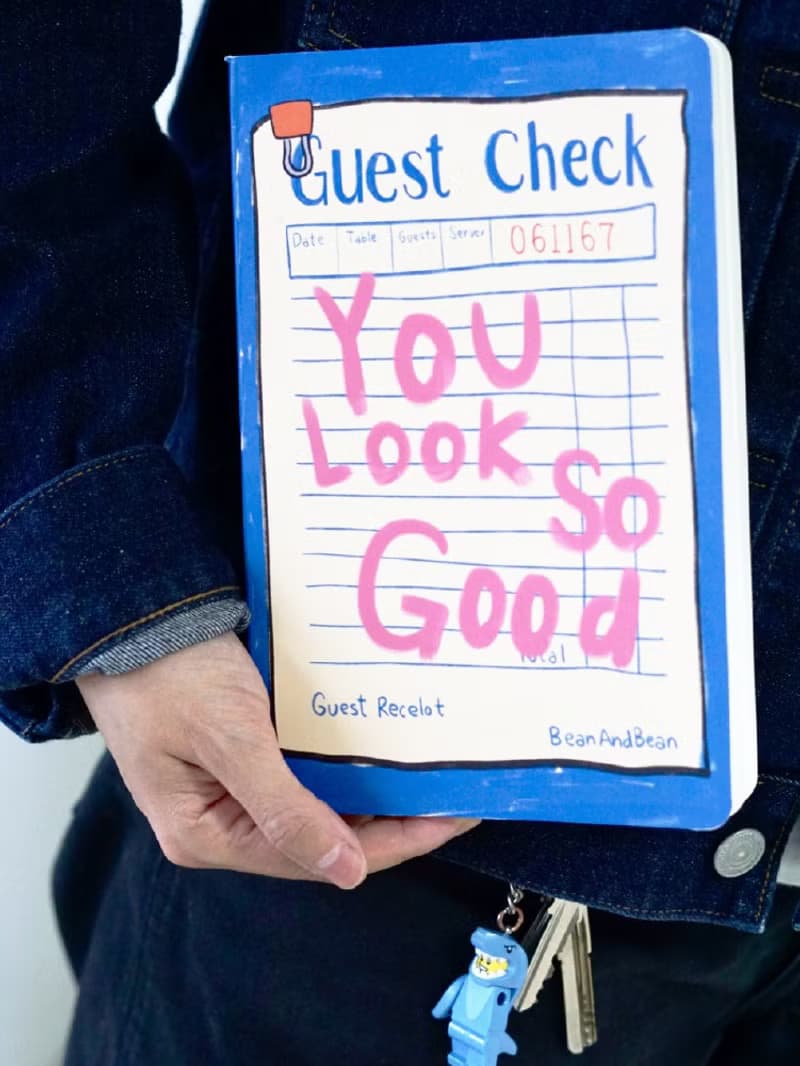 Guest Check
Date Table Guests Server 061167
You
Look
So
Good
Total
Guest Recelot
BeanAndBean